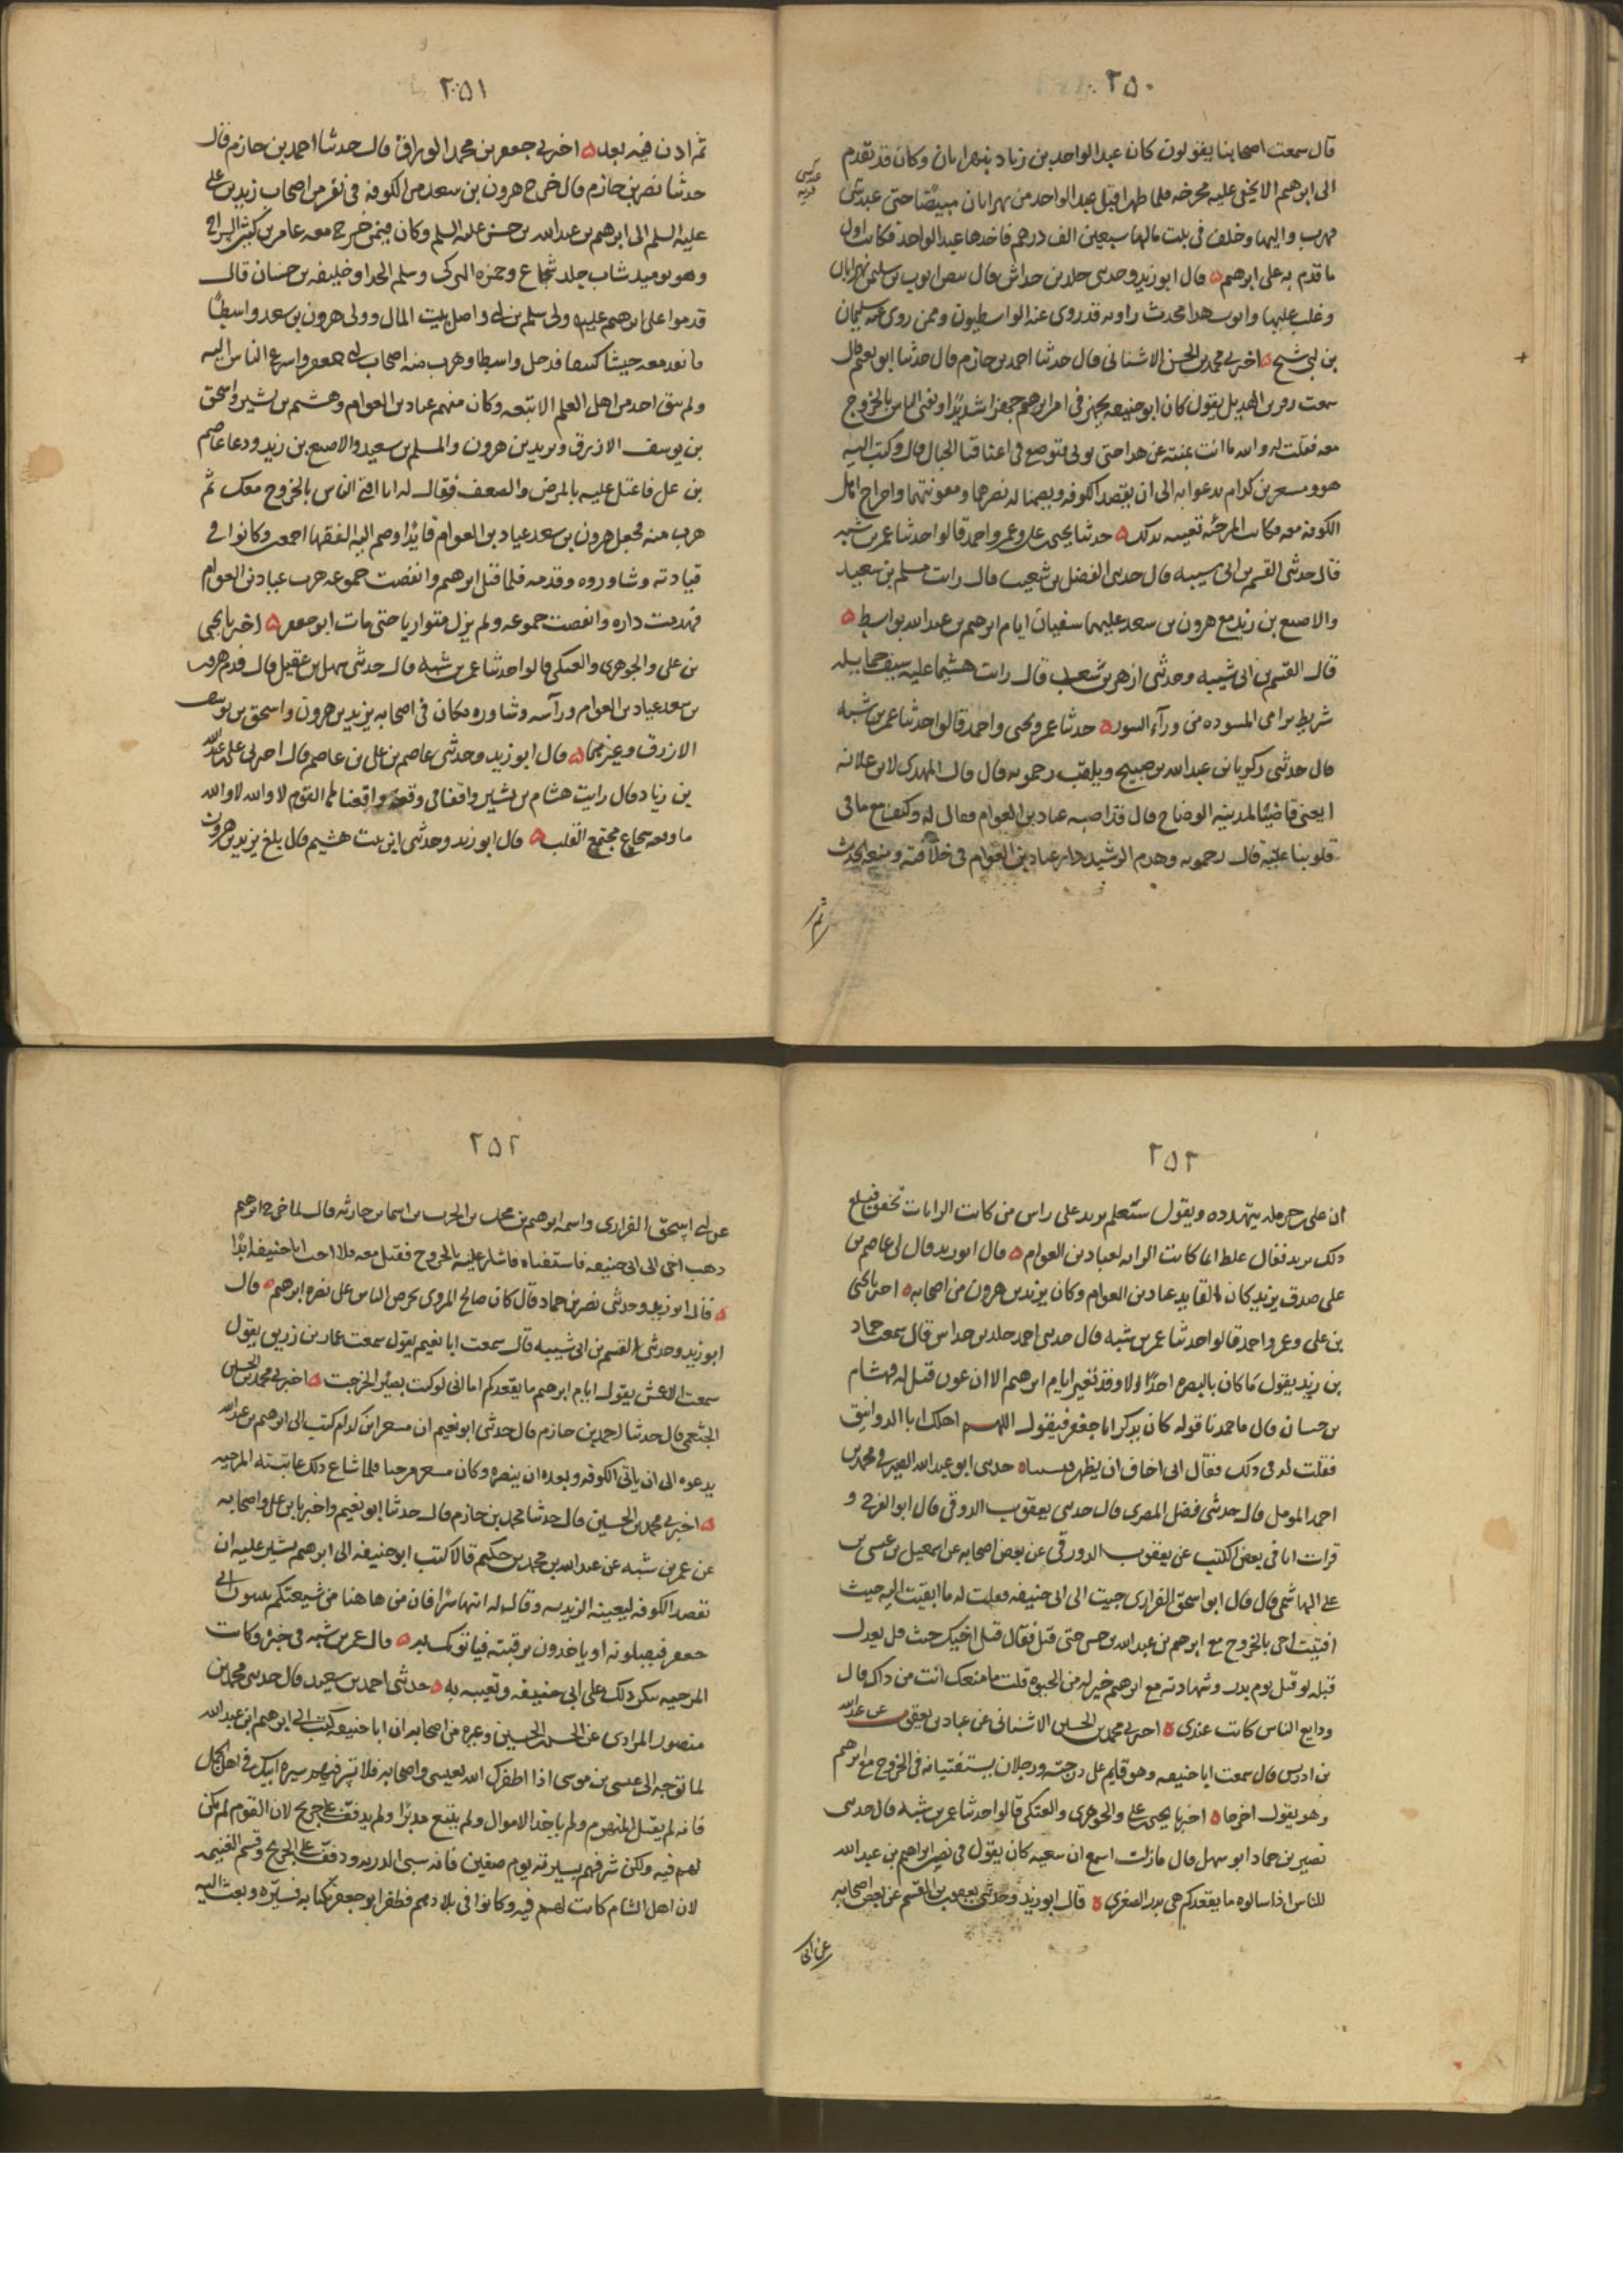 ٢٥٠
قال سمعت اصحابنا يقولون كان عبد الواحد بن زياد بنهرابان وكان قد تقدم
الى ابرهيم الا يخفى عليه مخرجه فلما ظهر اقبل عبد الواحد من نهرابان مبيضا حتى عبدسى
فهرب واليها وخلف فى بيت مالها سبعين الف درهم فاخذها عبد الواحد فكانت اول
ما قدم به على ابرهيم ه قال ابو زيد وحدثنى خلد بن خداش قال بيض ايوب بن سليمن نهرابان
وغلب عليها وايوب هذا محدث راويه قد روى عنه الواسطيون وممن روى عنه سليمان
بن ابى شيخ ه اخبرنى محمد بن الحسن الاشنانى قال حدثنا احمد بن حازم قال حدثنا ابو نعيم قال
سمعت زفر بن الهذيل يقول كان ابو حنيفه يجهر فى امر ابرهيم جهرا شديدا ويفتى الناس بالخروج
معه فقلت له والله ما انت بمنته عن هذا حتى نوتى فتوضع فى اعناقنا الحبال قال وكتب اليه
هو ومسعر بن كدام يدعوانه الى ان يقصد الكوفه ويضمنا له نصرهما ومعونتهما واخراج اهل
الكوفه معه فكانت المرجئه تعيبه بذلك ه حدثنا يحيى بن على وعمر واحمد قالوا حدثنا عمر بن شبه
قال حدثنى القسم بن ابى شيبه قال حدثنى الفضل بن شعيب قال رايت مسلم بن سعيد
والاصبع بن زيد مع هرون بن سعد عليهما سفيان ايام ابرهيم بن عبد الله بواسط ه
قال القسم بن ابى شيبه وحدثنى ازهر بن شعيب قال رايت هشيما عليه سيف حمايله
شريط يرامى المسوده من وراء السور ه حدثنا عمر ويحيى واحمد قالوا حدثنا عمر بن شبه
قال حدثنى زكريا بن عبد الله بن صبيح ويلقب رحمويه قال قال المهدى لابن علاثه
ابغنى قاضيا لمدينه الوضاح قال قد اصبته عباد بن العوام فقال له وكيف مع ما فى
قلوبنا عليه قال رحمويه وهدم الرشيد دار عباد بن العوام فى خلافته ومنعه الحديث
عبدسى
قريه
ثم
٢٥١
ثم اذن فيه بعد ه اخبرنى جعفر بن محمد الوراق قال حدثنا احمد بن حازم قال
حدثنا نصر بن حازم قال خرج هرون بن سعد من الكوفه فى نفر من اصحاب زيد بن على
عليه السلم الى ابرهيم بن عبد الله بن حسن عليه السلم وكان فيمن خرج معه عامر بن كثير السراج
وهو يوميذ شاب جلد شجاع وحمزه التركى وسلم الحذا وخليفه بن حسان قال
قدموا على ابرهيم عليه ولى سلم بن ابى واصل بيت المال وولى هرون بن سعد واسطا
فانفذ معه جيشا كثيفا فدخل واسطا وهرب منه اصحاب ابى جعفر واسرع الناس اليه
ولم يبق احد من اهل العلم الا تبعه وكان منهم عباد بن العوام وهشيم بن بشير واسحق
بن يوسف الازرق ويزيد بن هرون والمسلم بن سعيد والاصبع بن زيد ودعا عاصم
بن على فاعتل عليه بالمرض والضعف فقال له انا افتى الناس بالخروج معك ثم
هرب منه فجعل هرون بن سعد عباد بن العوام قايدا وضم اليه الفقها اجمعين وكانوا فى
قيادته وشاوروه وقدمه فلما قتل ابرهيم وانفضت جموعه هرب عباد بن العوام
فهدمت داره وانفضت جموعه ولم يزل متواريا حتى مات ابو جعفر ه اخبرنا يحيى
بن على والجوهرى والعتكى قالوا حدثنا عمر بن شبه قال حدثنى سهل بن عقيل قال قدم هرون
بن سعد عباد بن العوام وراسه وشاوره وكان فى اصحابه يزيد بن هرون واسحق بن يوسف
الازرق وغيرهما ه قال ابو زيد وحدثنى عاصم بن على بن عاصم قال اخبرنى على بن عبد الله
بن زياد قال رايت هشام بن بشير واقفا فى وقعه واقعنا فيها القوم لا والله لا والله
ما وقفه شجاع مجتمع القلب ه قال ابو زيد وحدثنى ابن بنت هشيم قال بلغ يزيد بن هرون
٢٥٢
ان على بن حرمله يتهدده ويقول ستعلم يزيد على راس من كانت الرايات تخفق فبلغ
ذلك يزيد فقال غلط انما كانت الرايه لعباد بن العوام ه قال ابو زيد قال لى عاصم بن
على صدق يزيد كان القايد عباد بن العوام وكان يزيد بن هرون من اصحابه ه اخبرنا يحيى
بن على وعمر واحمد قالوا حدثنا عمر بن شبه قال حدثنى احمد خلد بن خداش قال سمعت حماد
بن زيد يقول ما كان بالبصره احد الا وقد تغير ايام ابرهيم الا ابن عون قيل له فهشام
بن حسان قال ما حمدنا قوله كان يذكر ابا جعفر فيقول اللهم اهلك ابا الدوانيق
فقلت له فى ذلك فقال انى اخاف ان يظهر ه حدثنى ابو عبد الله الصيرفى محمد بن
احمد المومل قال حدثنى فضل المصرى قال حدثنى يعقوب الدورقى قال ابو الفرج و
قرات انا فى بعض الكتب عن يعقوب الدورقى عن بعض اصحابه عن اسمعيل بن عيسى بن
على الهاشمى قال قال ابو اسحق الفزارى جيت الى ابى حنيفه فقلت له ما اتقيت الله حيث
افتيت اخى بالخروج مع ابرهيم بن عبد الله بن حسن حتى قتل فقال قتل اخيك حيث قتل يعدل
قتله لو قتل يوم بدر وشهادته مع ابرهيم خير له من الحيوه قلت ما منعك انت من ذاك قال
ودايع الناس كانت عندى ه اخبرنى محمد بن الحسين الاشنانى عن عباد بن يعقوب عن عبد الله
بن ادريس قال سمعت ابا حنيفه وهو قايم على درجته ورجلان يستفتيانه فى الخروج مع ابرهيم
وهو يقول اخرجا ه اخبرنا يحيى بن على والجوهرى والعتكى قالوا حدثنا عمر بن شبه قال حدثنى
نصير بن حماد ابو سهل قال مازلت اسمع ان شعبه كان يقول فى نصر ابراهيم بن عبد الله
للناس اذا سالوه ما يقعدكم هى بدر الصغرى ه قال ابو زيد وحدثنى يعقوب بن القسم عن بعض اصحابه
عن ابى
٢٥٢
عن ابى اسحق الفزارى واسمه ابرهيم بن محمد بن الحرث بن اسما بن حارثه قال لما خرج ابرهيم
ذهب اخى الى ابى حنيفه فاستفتاه فاشار عليه بالخروج فقتل معه فلا احب ابا حنيفه ابدا
ه قال ابو زيد وحدثنى نصر بن حماد قال كان صالح المروى يحرض الناس على نصره ابرهيم ه قال
ابو زيد وحدثنى القسم بن ابى شيبه قال سمعت ابا نعيم يقول سمعت عمار بن زريق يقول
سمعت الاعمش يقول ايام ابرهيم ما يقعدكم اما انى لو كنت بصيرا لخرجت ه اخبرنى محمد بن الحسين
الخثعمى قال حدثنا احمد بن حازم قال حدثنى ابو نعيم ان مسعر ابن كدام كتب الى ابرهيم بن عبد الله
يدعوه الى ان ياتى الكوفه ويعده ان ينصره وكان مسعر مرجيا فلما شاع ذلك عاتبته المرجيه
ه اخبرنى محمد بن الحسين قال حدثنا محمد بن حازم قال حدثنا ابو نعيم واخبرنا بن على واصحابه
عن عمر بن شبه عن عبد الله بن محمد بن حكيم قالا كتب ابو حنيفه الى ابرهيم يشير عليه ان
يقصد الكوفه ليعينه الزيديه وقال له ائتها سرا فان من هاهنا من شيعتكم يبيتون ابا
جعفر فيقتلونه او ياخذون برقبته فياتونك به ه قال عمر بن شبه فى خبره وكانت
المرجيه تنكر ذلك على ابى حنيفه وتعيبه به ه حدثنى احمد بن سعيد قال حدثنى محمد بن
منصور المرادى عن الحسن بن الحسين وغيره من اصحابه ان ابا حنيفه كتب الى ابرهيم ابن عبد الله
لما توجه الى عيسى بن موسى اذا اظفرك الله بعيسى واصحابه فلا تسر فيهم سيره ابيك فى اهل الجمل
فانه لم يقتل المنهزم ولم ياخذ الاموال ولم يتبع مدبرا ولم يذفف على جريح لان القوم لم يكن
لهم فيه ولكن سر فيهم بسيرته يوم صفين فانه سبى الذريه وذفف على الجريح وقسم الغنيمه
لان اهل الشام كانت لهم فيه وكانوا فى بلادهم فظفر ابو جعفر بكتابه فستره وبعث اليه